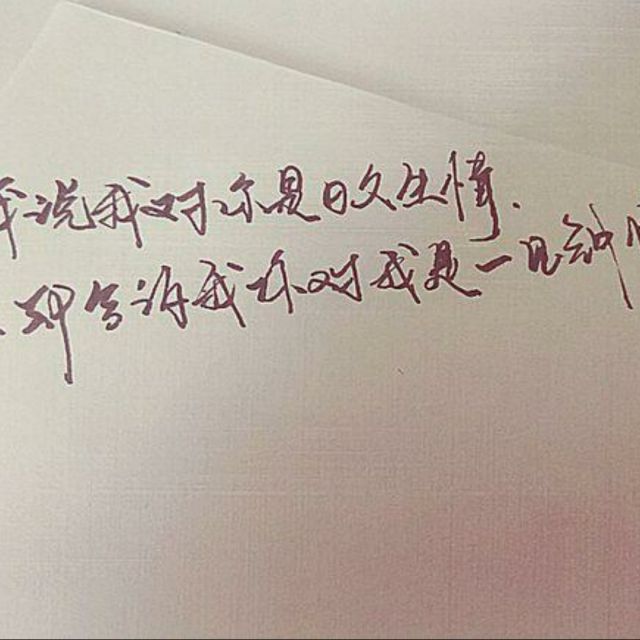 我说我对你是日久生情.
你却告诉我你对我是一见钟